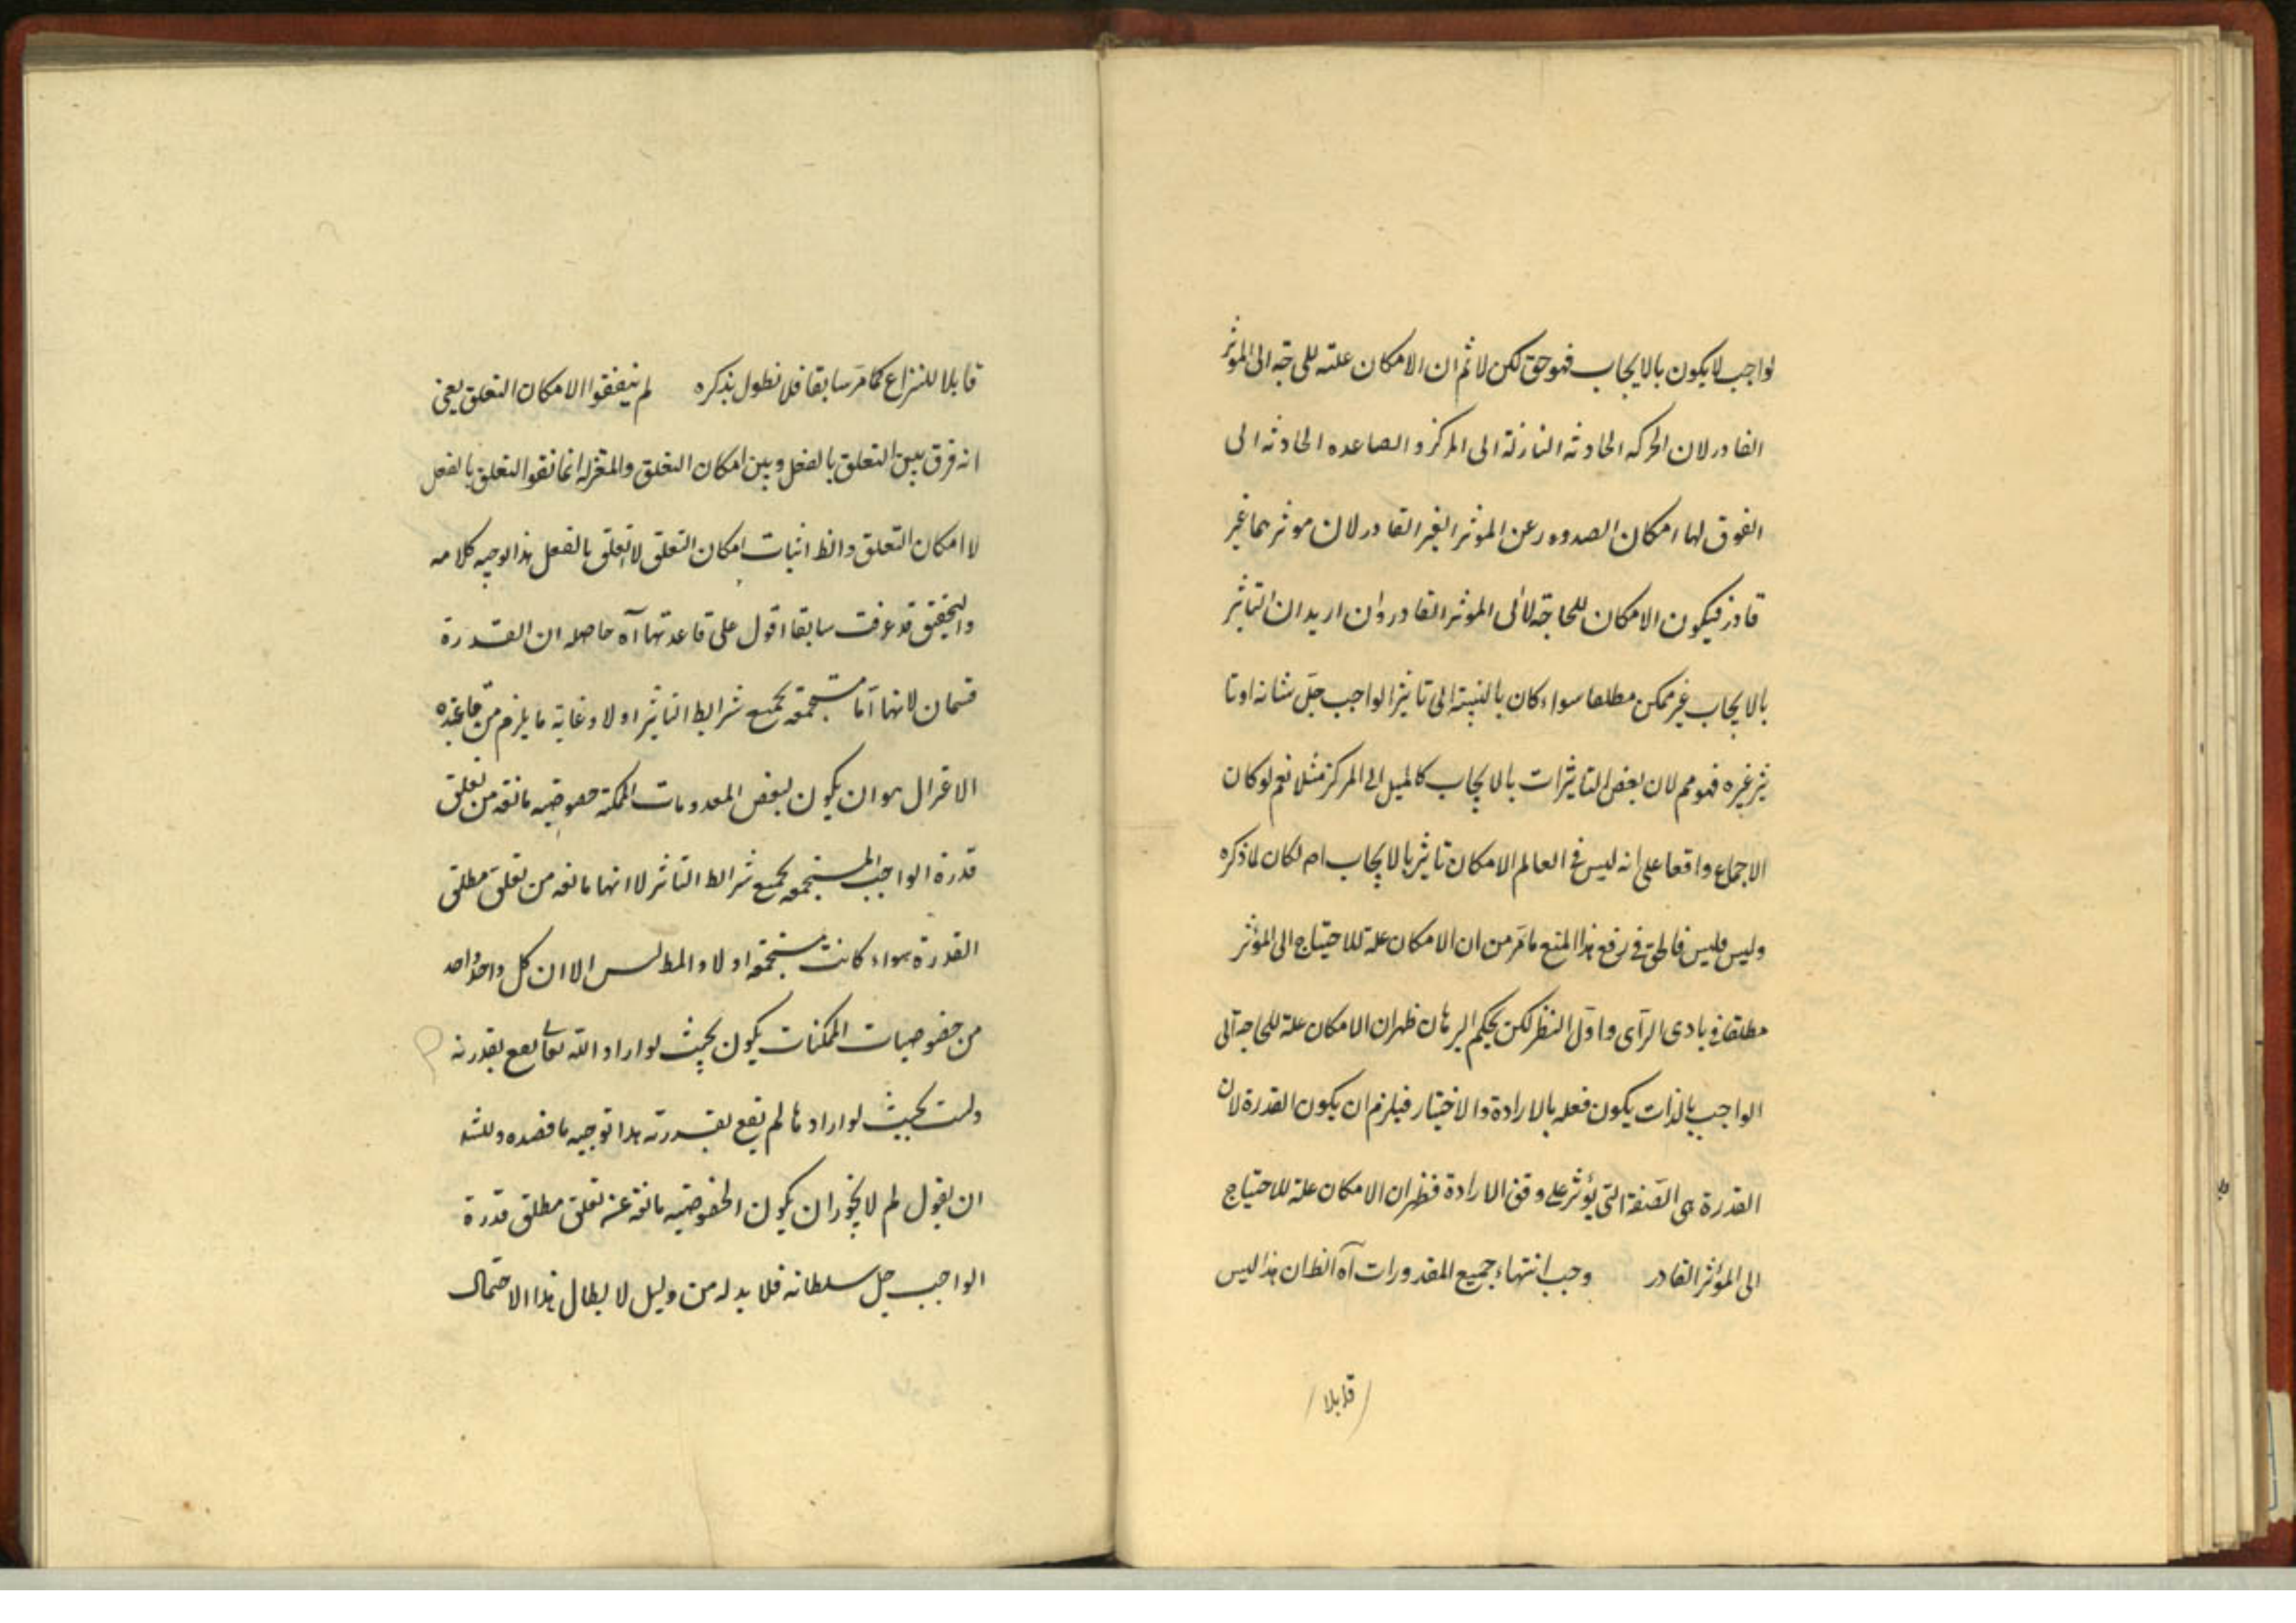 لواجب لا يكون بالايجاب فهو حق لكن لا ثم ان الامكان علته للحاجة الى الموثر
القادر لان الحركه الحادثه النازلة الى المركز و الصاعده الحادثه الى
الفوق لها امكان الصدور عن الموثر الغير القادر لان موثرهما غير
قادر فيكون الامكان للحاجة لا الى الموثر القادر وان اريد ان التاثير
بالايجاب غير ممكن مطلقا سواء كان بالنسبة الى تاثير الواجب جل شانه او تا
ثير غيره فهو مم لان بعض التاثيرات بالايجاب كالميل الى المركز مثلا نعم لو كان
الاجماع واقعا على انه ليس في العالم الامكان تاثير بالايجاب اصلا لكان لما ذكره
وليس فليس فالحق في رفع هذا المنع ما مر من ان الامكان علة للاحتياج الى المؤثر
مطلقا في بادى الرآى واول النظر لكن بحكم البرهان ظهر ان الامكان علة للحاجة الى
الواجب بالذات يكون فعله بالارادة والاختيار فيلزم ان يكون القدرة لان
القدرة هى الصفة التى يؤثر على وفق الارادة فظهر ان الامكان علة للاحتياج
الى المؤثر القادر وجب انتهاء جميع المقدورات آه الظ ان هذا ليس
قابلا
قابلا للنزاع كما مر سابقا فلا نطول بذكره لم ينفقوا الامكان التعلق يعنى
انه فرق بين التعلق بالفعل وبين امكان التعلق والمعتزله انما نفوا التعلق بالفعل
لا امكان التعلق والظ اثبات امكان التعلق لا تعلق بالفعل هذا توجيه كلامه
والتحقيق قد عرفت سابقا اقول على قاعدتها آه حاصله ان القدرة
قسمان لانها اما مستجمعة لجميع شرايط التاثير او لا وغاية ما يلزم من قاعدة
الاعتزال هو ان يكون لبعض المعدومات الممكنة خصوصية مانعة من تعلق
قدرة الواجب المستجمعه لجميع شرائط التاثير لا انها مانعه من تعلق مطلق
القدرة سواء كانت مستجمعه او لا والمط ليس الا ان كل واحد واحد
من خصوصيات الممكنات يكون بحيث لو اراد الله تعالى يقع بقدرته
وليست بحيث لو ارادها لم يقع بقدرته هذا توجيه ما قصده
ان يقول لم لا يجوز ان يكون الخصوصية مانعة عنه تعلق مطلق قدرة
الواجب جل سلطانه فلا بد له من دليل لابطال هذا الاحتمال